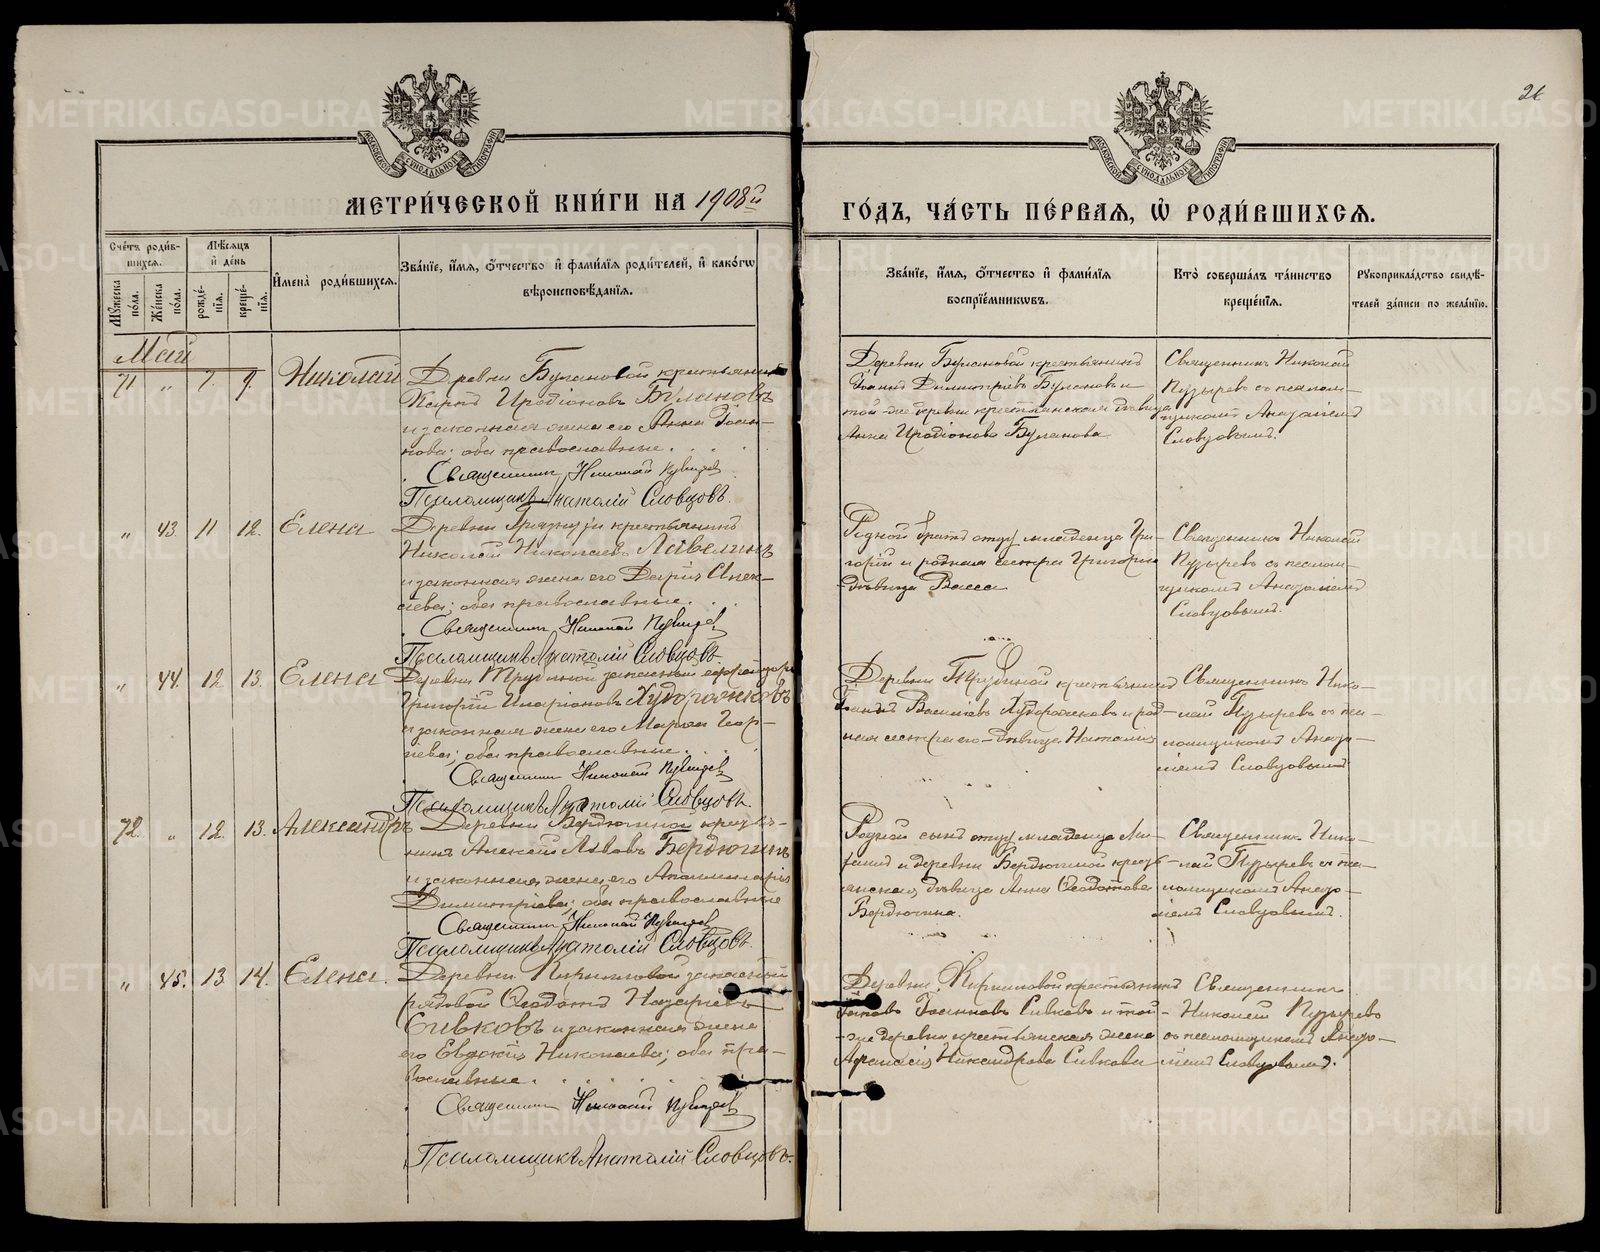 26
МОСКОВСКОЙ СѴНОДАЛЬНОЙ ТИПОГРАФІИ
МОСКОВСКОЙ СѴНОДАЛЬНОЙ ТИПОГРАФІИ
МЕТРИ́ЧЕСКОЙ КНИ́ГИ НА 1908й
ГО́ДЪ, ЧА́СТЬ ПЕ́РВАЯ, Ѡ҆ РОДИ́ВШИХСЯ.
Сче́тъ роди́в-
шихся.
Мꙋжеска по́ла.
Же́нска по́ла.
Мѣ́сяцъ
и҆ де́нь
рожде́-
нїя.
креще́-
нїя.
И҆мена̀ роди́вшихся.
Зва́нїе, и҆́мя, ѻ҆́тчество и҆ фами́лїя роди́телей, и҆ како́гѡ
вѣроисповѣ́данїя.
Зва́нїе, и҆́мя, ѻ҆́тчество и҆ фами́лїя
воспрїе́мникѡвъ.
Кто̀ соверша́лъ та́инство
креще́нїя.
Рꙋкоприкла́дство свидѣ́-
телей за́писи по жела́нїю.
Май
71 " 7. 9. Николай
Деревни Булановой крестьянинъ
Карпъ Иродіоновъ Булановъ
и законная жена его Анна Іоан-
нова; оба православные. . . .
Священникъ Николай Пузыревъ
Псаломщикъ Анатолій Словцовъ.
Деревни Булановой крестьянинъ
Іоаннъ Димитріевъ Булановъ и
той-же деревни крестьянская дѣвица
Анна Иродіонова Буланова
Священникъ Николай
Пузыревъ съ псалом-
щикомъ Анатоліемъ
Словцовымъ.
" 43. 11 12. Елена
Деревни крестьянинъ
Николай Николаевъ Лавелинъ
и законная жена его Дарія Алек-
сіева; оба православные. . .
Священникъ Николай Пузыревъ
Псаломщикъ Анатолій Словцовъ
Родной братъ отцу младенца Гри-
горій и родная сестра Григорія
дѣвица Васса
Священникъ Николай
Пузыревъ съ псалом-
щикомъ Анатоліемъ
Словцовымъ.
" 44. 12 13. Елена
Деревни Трубиной запасный ефрейторъ
Григорій Иларіоновъ Худорожковъ
и законная жена его Марѳа Геор-
гіева; оба православные. . . .
Священникъ Николай Пузыревъ
Псаломщикъ Анатолій Словцовъ.
Деревни Трубиной крестьянинъ
Іоаннъ Васильевъ Худорожковъ и род-
ная сестра его дѣвица Наталія
Священникъ Нико-
лай Пузыревъ съ пса-
ломщикомъ Анато-
ліемъ Словцовымъ
72. " 12. 13. Александръ
Деревни Бердюгиной крестья-
нинъ Алексѣй Львовъ Бердюгинъ
и законная жена его Аполлинарія
Димитріева; оба православные
Священникъ Николай Пузыревъ
Псаломщикъ Анатолій Словцовъ.
Родной сынъ отцу младенца
и деревни Бердюгиной кресть-
янская дѣвица Анна Ѳеодотова
Бердюгина.
Священникъ Нико-
лай Пузыревъ съ пса-
ломщикомъ Анато-
ліемъ Словцовымъ.
" 45. 13. 14. Елена.
Деревни Кирилловой запасный
рядовой Ѳеодотъ Назаріевъ
Сивковъ и законная жена
его Евдокія Николаева; оба пра-
вославные. . . . . . .
Священникъ Николай Пузыревъ
Псаломщикъ Анатолій Словцовъ.
Деревни Кирилловой крестьянинъ
Іаковъ Іоанновъ Сивковъ и той-
же деревни крестьянская жена
Аѳанасія Никандрова Сивкова
Священникъ
Николай Пузыревъ
съ псаломщикомъ Анато-
ліемъ Словцовымъ.
METRIKI.GASO-URAL.RU